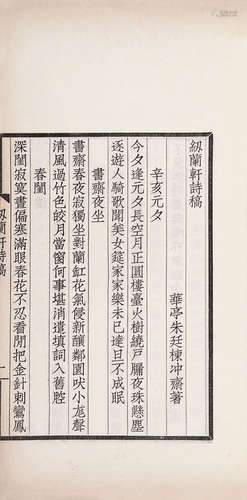 紉蘭軒詩稿
華亭朱廷棟冲齋著
辛亥元夕
今夕逢元夕長空月正圓樓臺火樹繞戸牖夜珠懸塵
逐遊人騎歌聞美女筵家家樂未已達旦不成眠
書齋夜坐
書齋春夜寂獨坐對蘭缸花氣侵新釀鄰園吠小尨聲
清風過竹色皎月當窗何事堪消遣填詞入舊腔
春閨
深閨寂寞晝偏寒滿眼春花不忍看閒把金針刺鸞鳳
紉蘭軒詩稿
一